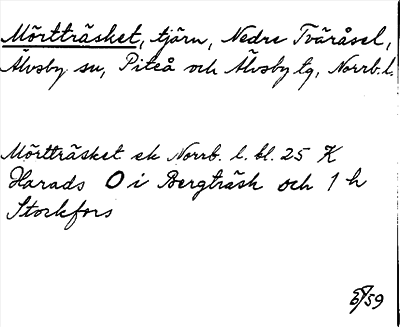 Mörtträsket, tjärn, Nedre Tväråsel,
Älvsby sn, Piteå och Älvsby tg, Norrb. l.
Mörtträsket ek Norrb. l. bl. 25 K
Harads O i Bergträsk och 1 h
Storkfors
59